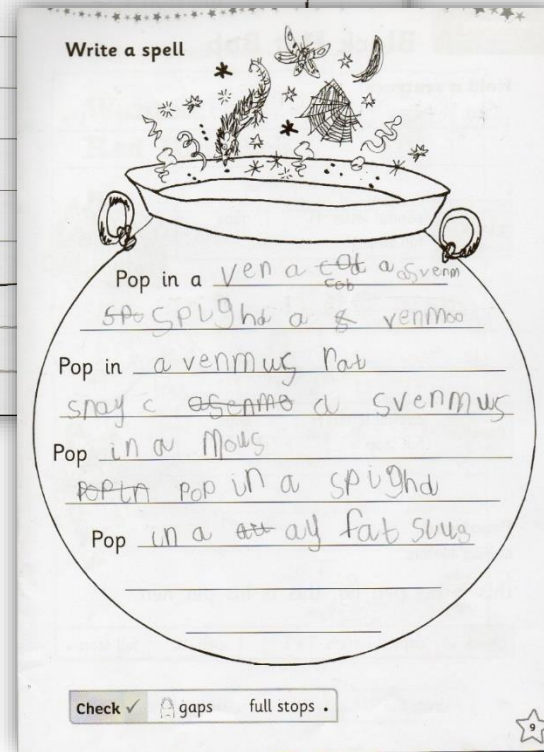 Write a spell
Pop in a ven a cod a a svenm
cob
spo spighd a g venmoo
Pop in a venmus rat
snay c asenmo a svenmus
Pop in a mous
pop in pop in a spighd
Pop in a ay fat slug
Check ✓ gaps full stops .
9